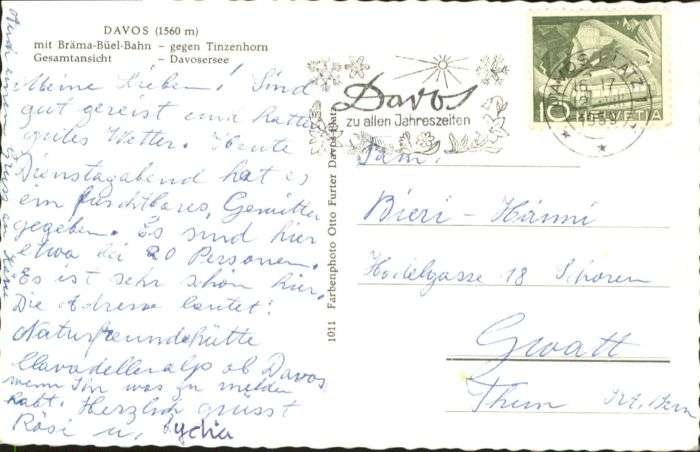 DAVOS (1560 m)
mit Bräma-Büel-Bahn – gegen Tinzenhorn
Gesamtansicht – Davosersee
Meine Lieben! Sind
gut gereist und hatten
gutes Wetter. Heute
Dienstagabend hat es
ein furchtbares Gewitter
gegeben. Es sind hier
etwa bei 20 Personen.
Es ist sehr schön hier.
Die Adresse lautet:
Naturfreundehütte
Clavadelleralp ob Davos
wenn Ihr was zu melden
habt. Herzlich grüsst
Rösi u.
1011 Farbenphoto Otto Furter Davos-Platz
Davos
zu allen Jahreszeiten
DAVOS PLATZ
10 HELVETIA
Fam.
Bieri-Hänni
Hodelgasse 18 Schoren
Gwatt
Thun Kt. Bern